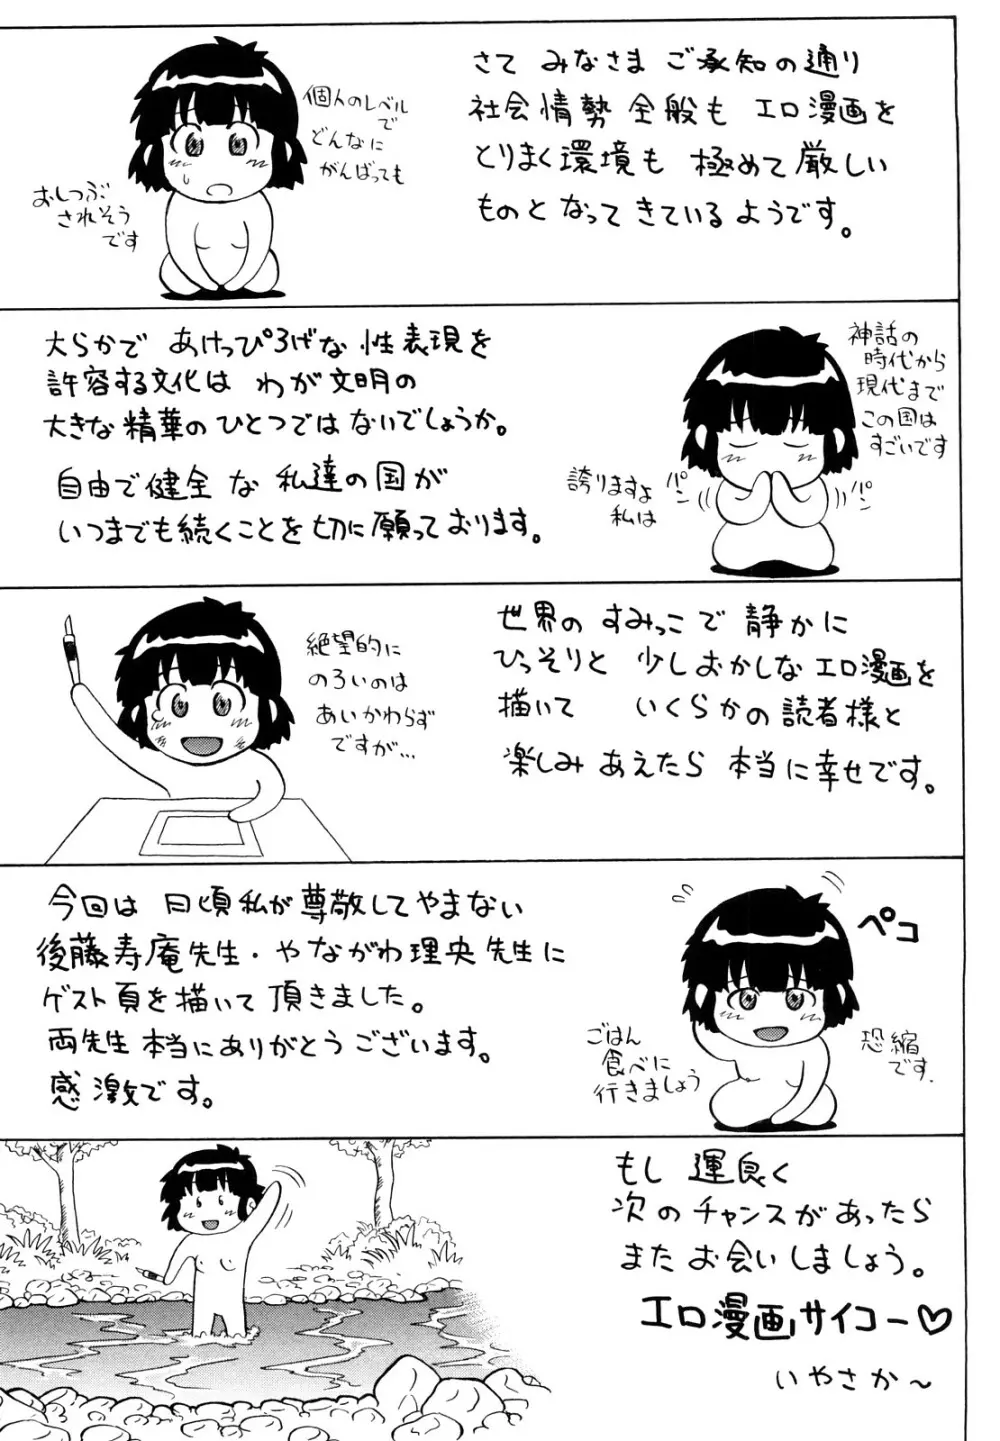 さて みなさま ご承知の通り
社会情勢 全般も エロ漫画を
とりまく環境も 極めて厳しい
ものと なって きている ようです。
個人のレベル
で
どんなに
がんばっても
おしつぶ
されそう
です
大らかで あけっぴろげな 性表現を
許容する文化は わが文明の
大きな 精華の ひとつでは ないでしょうか。
自由で健全 な 私達の国が
いつまでも続くことを切に願っております。
神話の
時代から
現代まで
この国は
すごいです
誇りますよ
私は
パン
パン
世界の すみっこで 静かに
ひっそりと 少しおかしな エロ漫画を
描いて いくらかの読者様と
楽しみ あえたら 本当に幸せです。
絶望的に
のろいのは
あいかわらず
ですが…
今回は 日頃私が尊敬してやまない
後藤寿庵先生・やながわ理央先生に
ゲスト頁を描いて頂きました。
両先生 本当にありがとうございます。
感激です。
ペコ
ごはん
食べに
行きましょう
恐縮
です.
もし 運良く
次のチャンスがあったら
また お会いしましょう。
エロ漫画サイコー♡
いやさか～